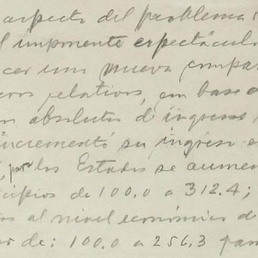 aspecto del problema
el imponente espectáculo
cer una nueva compa
cos relativos, con base a
n absolutos d ingresos
incrementó su ingreso e
, por los Estados se aumen
cipios de 100.0 a 312.4;
os al nivel económico d
or de: 100.0 a 256.3 para